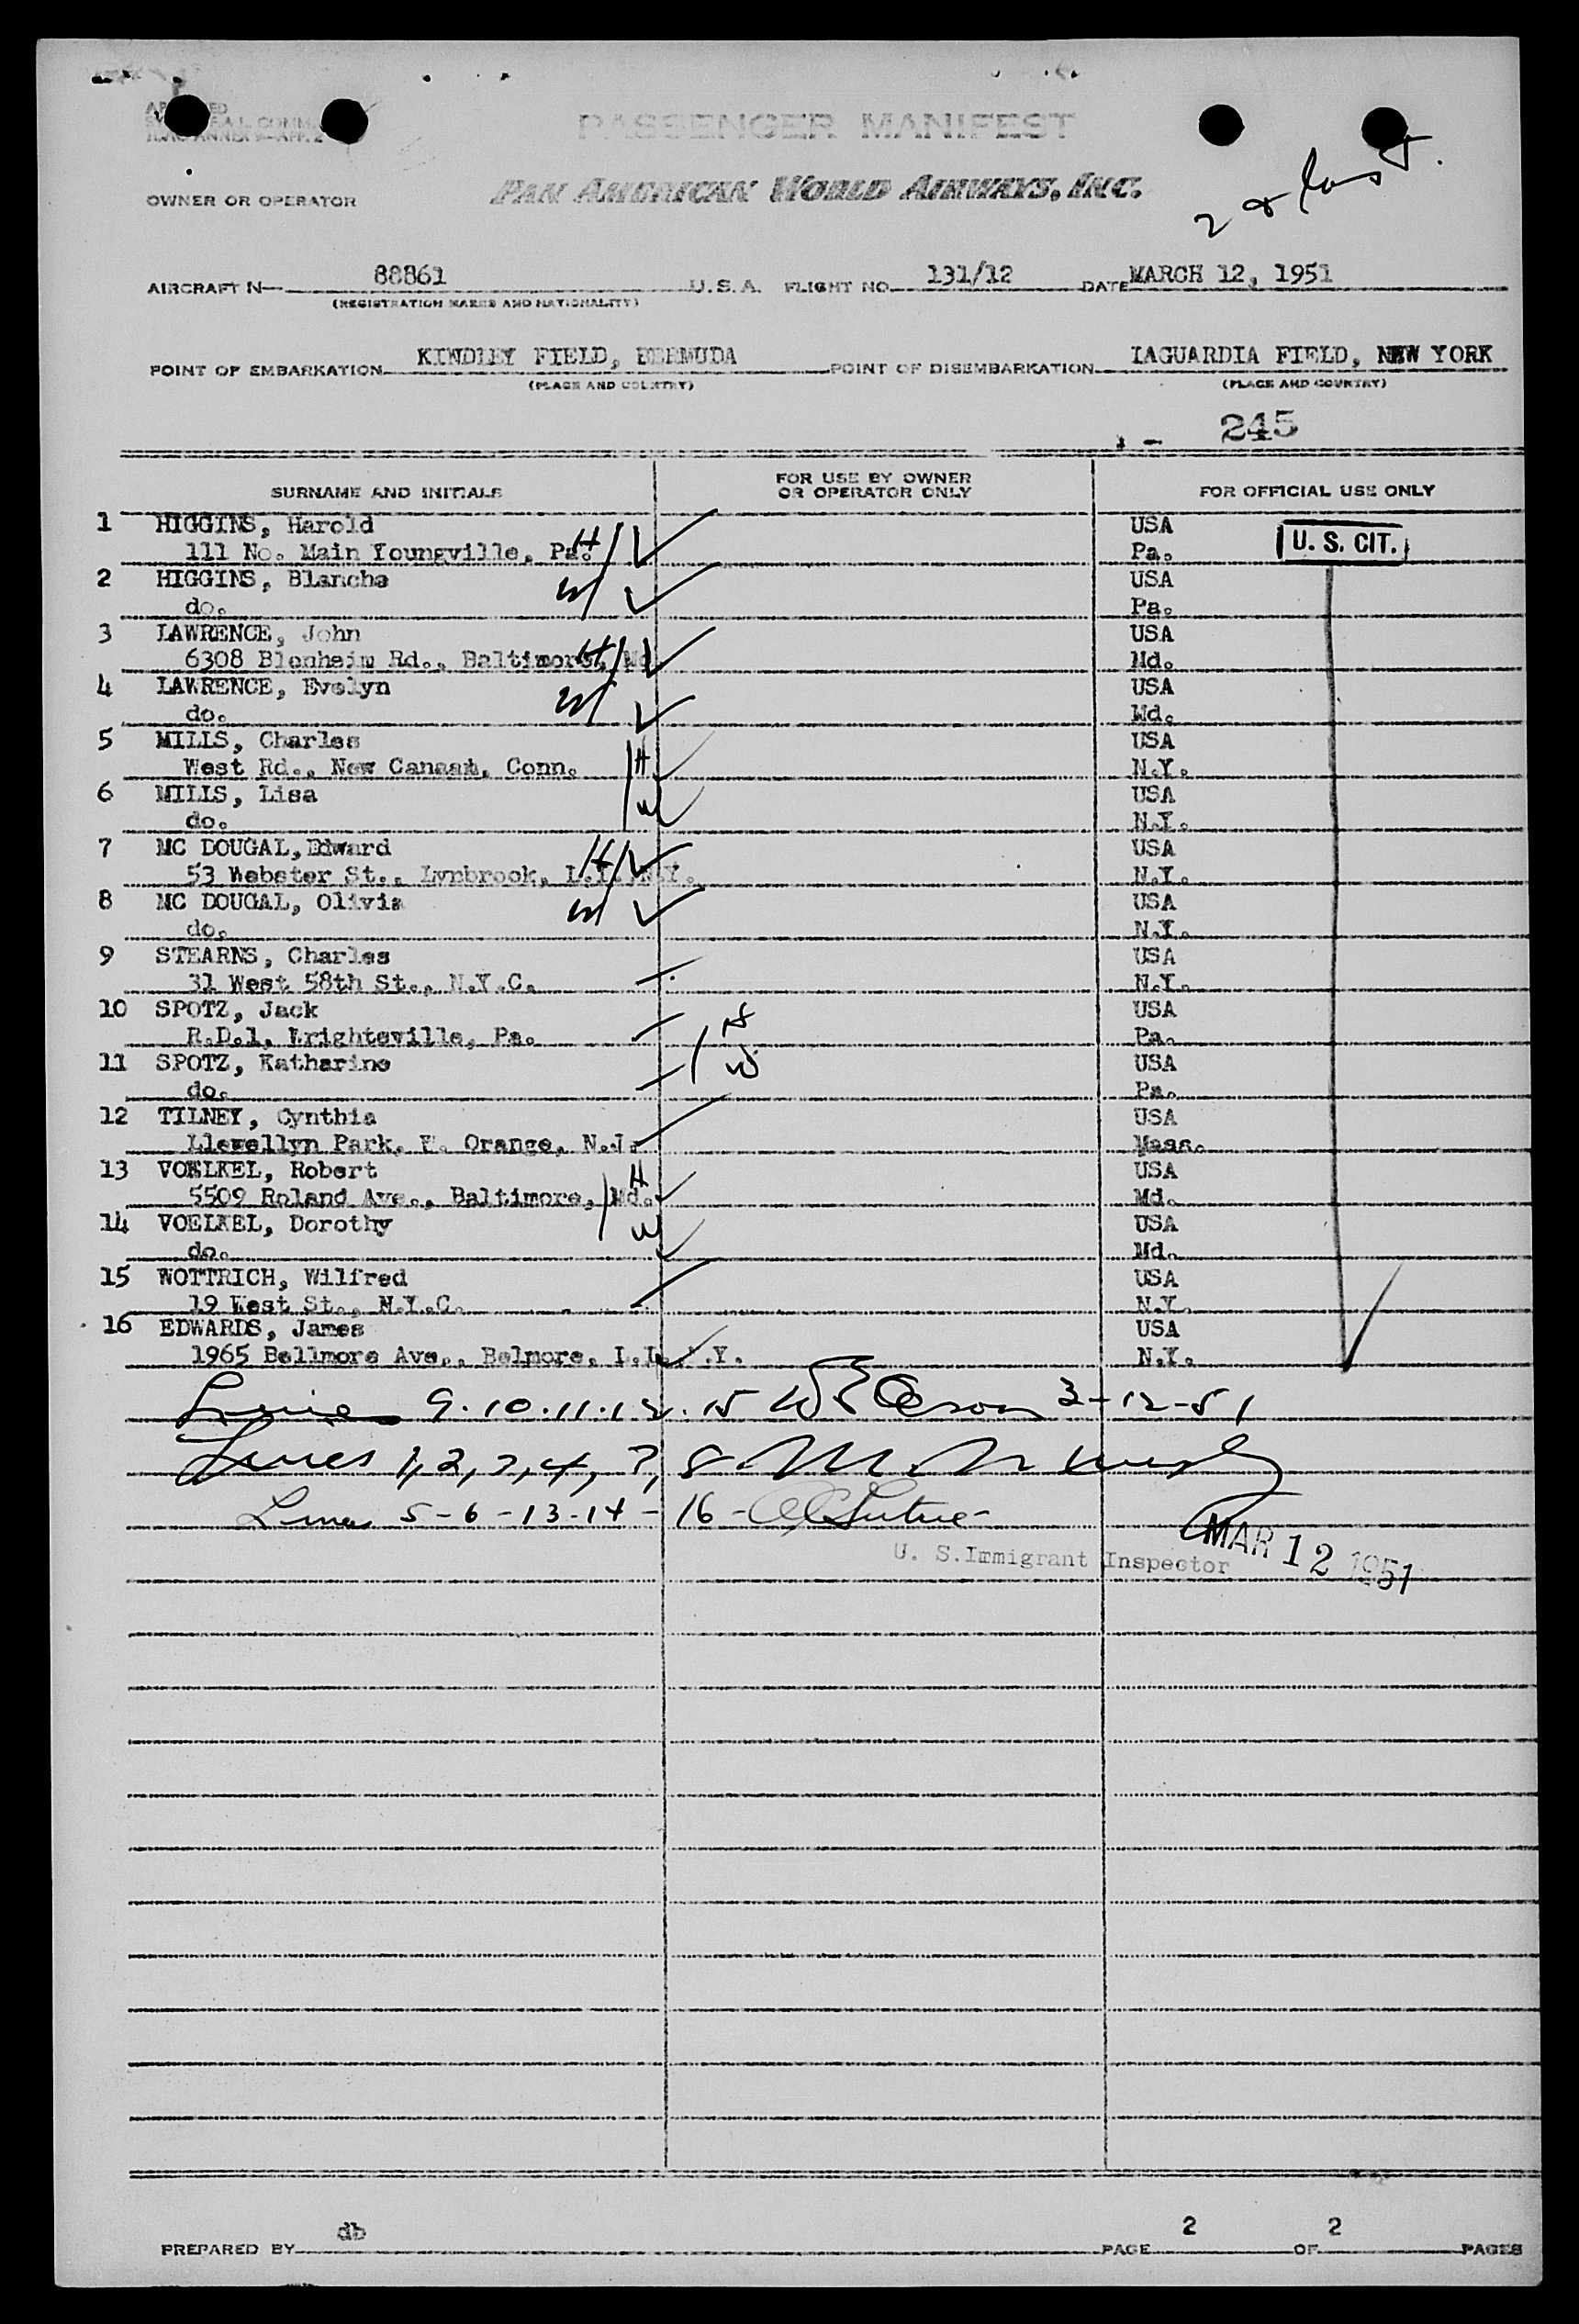 PASSENGER MANIFEST
OWNER OR OPERATOR PAN AMERICAN WORLD AIRWAYS, INC.
2 & last.
AIRCRAFT N— 88861 U.S.A. FLIGHT NO. 131/12 DATE MARCH 12, 1951
(REGISTRATION MARKS AND NATIONALITY)
POINT OF EMBARKATION KINDLEY FIELD, BERMUDA POINT OF DISEMBARKATION LAGUARDIA FIELD, NEW YORK
(PLACE AND COUNTRY) (PLACE AND COUNTRY)
245
SURNAME AND INITIALS FOR USE BY OWNER OR OPERATOR ONLY FOR OFFICIAL USE ONLY
1 HIGGINS, Harold USA
111 No. Main Youngville, Pa. H Pa. U. S. CIT.
2 HIGGINS, Blanche USA
do. W Pa.
3 LAWRENCE, John USA
6308 Blenheim Rd., Baltimore, Md. H Md.
4 LAWRENCE, Evelyn USA
do. W Md.
5 MILLS, Charles USA
West Rd., New Canaan, Conn. H N.Y.
6 MILLS, Lisa USA
do. W N.Y.
7 MC DOUGAL, Edward USA
53 Webster St., Lynbrook, L.I., N.Y. H N.Y.
8 MC DOUGAL, Olivia USA
do. W N.Y.
9 STEARNS, Charles USA
31 West 58th St., N.Y.C. N.Y.
10 SPOTZ, Jack USA
R.D.1, Wrightsville, Pa. H Pa.
11 SPOTZ, Katharine USA
do. W Pa.
12 TILNEY, Cynthia USA
Llewellyn Park, W. Orange, N.J. Mass.
13 VOELKEL, Robert USA
5509 Roland Ave., Baltimore, Md. H Md.
14 VOELKEL, Dorothy USA
do. W Md.
15 WOTTRICH, Wilfred USA
19 West St., N.Y.C. N.Y.
16 EDWARDS, James USA
1965 Bellmore Ave., Belmore, L.I., N.Y. N.Y.
Lines 9.10.11.12.15 3-12-51
Lines 1,2,3,4,7,8
Lines 5-6-13-14-16-
U. S. Immigrant Inspector MAR 12 1951
PREPARED BY db PAGE 2 OF 2 PAGES